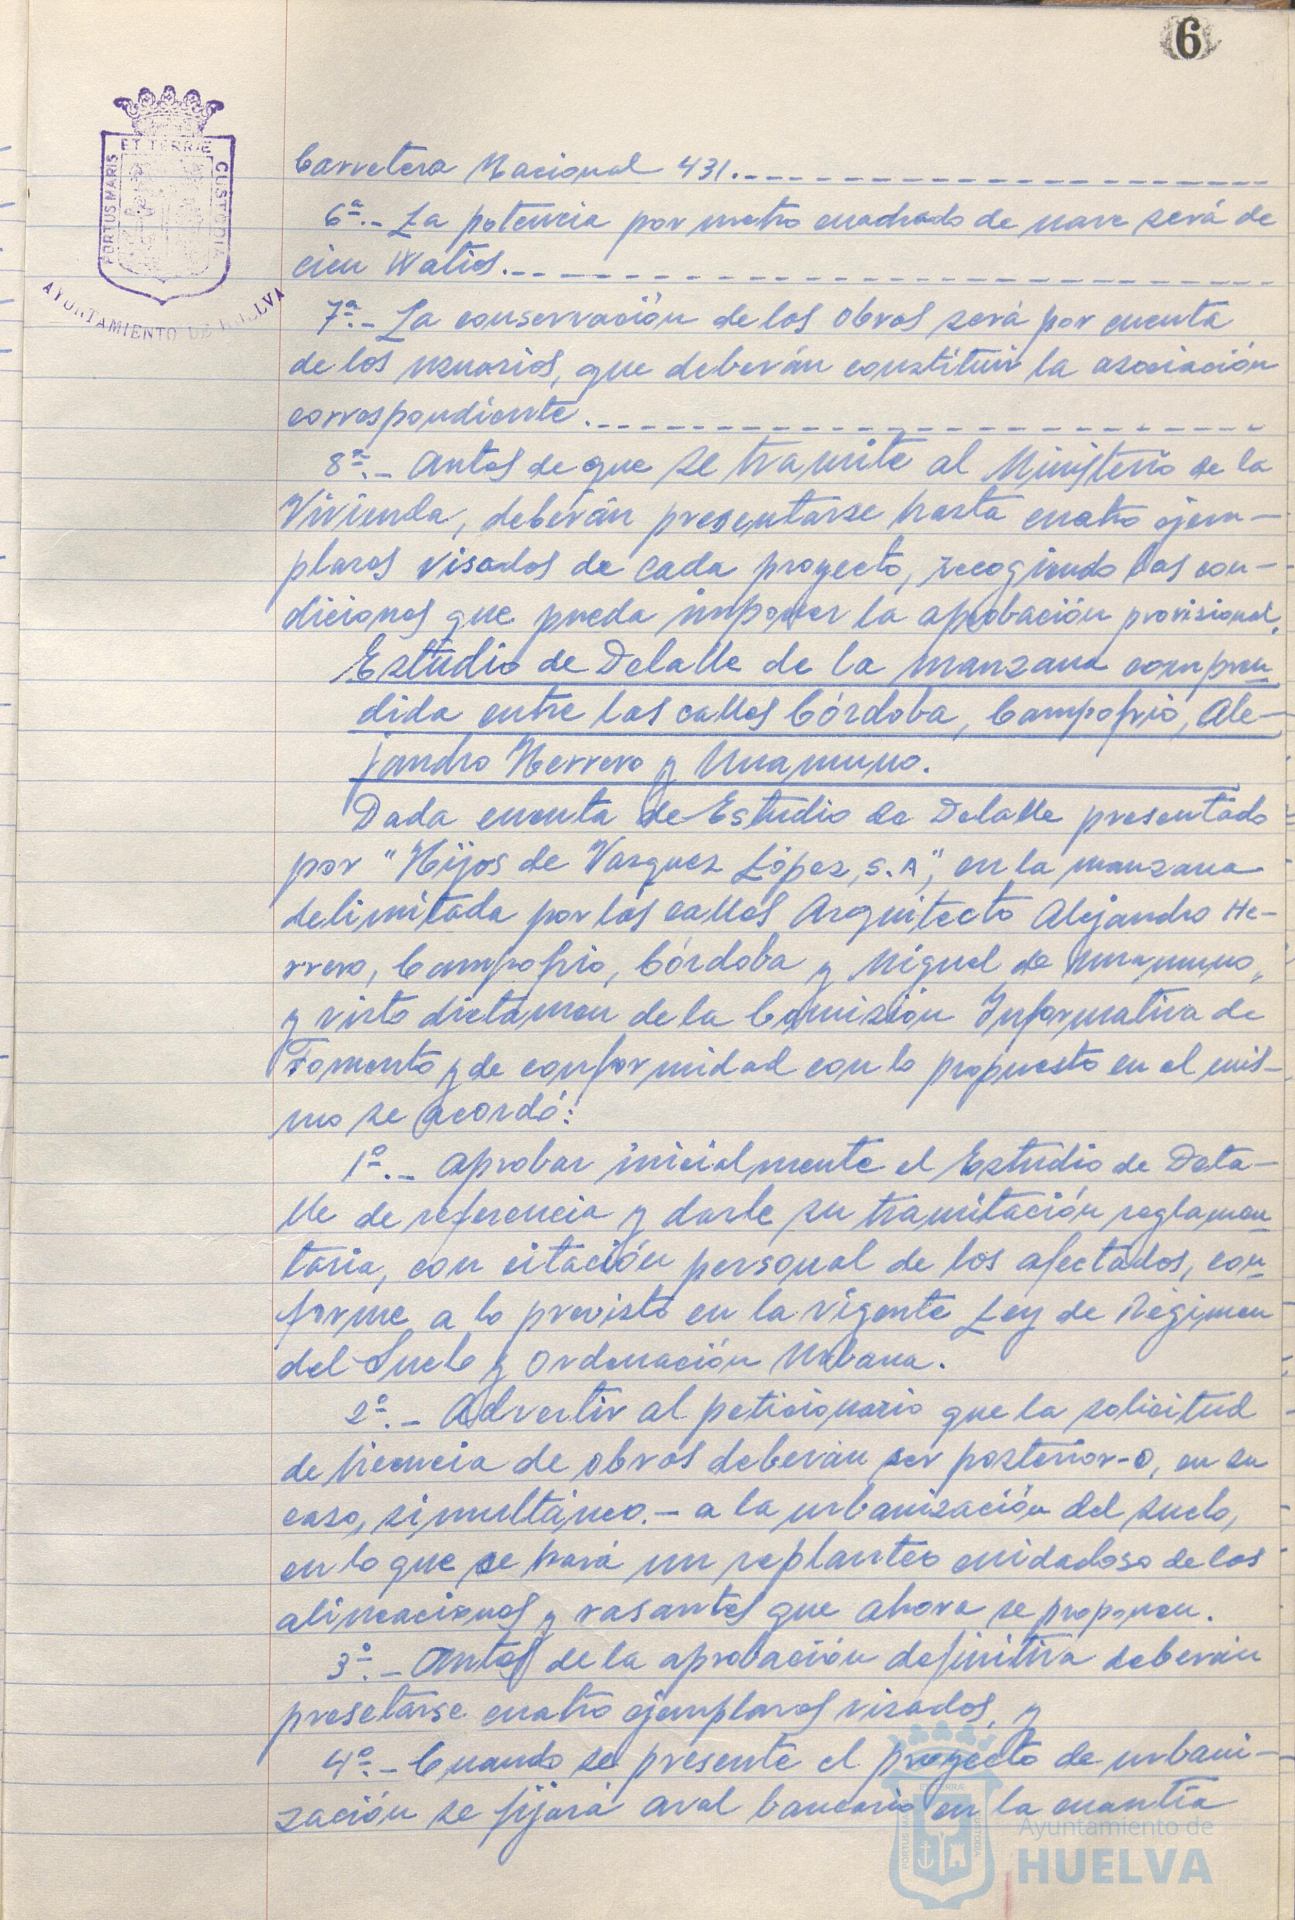 6
ET TERRÆ
PORTUS MARIS
CUSTODIA
AYUNTAMIENTO DE HUELVA
Carretera Nacional 431.
6ª.- La potencia por metro cuadrado de nave será de
cien Watios.
7ª.- La conservación de las obras será por cuenta
de los usuarios, que deberán constituir la asociación
correspondiente.
8ª.- Antes de que se tramite al Ministerio de la
Vivienda, deberán presentarse hasta cuatro ejem-
plares visados de cada proyecto, recogiendo las con-
diciones que pueda imponer la aprobación provisional.
Estudio de Detalle de la manzana compren
dida entre las calles Córdoba, Campofrío, Ale-
jandro Herrero y Unamuno.
Dada cuenta de Estudio de Detalle presentado
por "Hijos de Vazquez López, S.A", en la manzana
delimitada por las calles Arquitecto Alejandro He-
rrero, Campofrio, Córdoba y Miguel de Unamuno,
y visto dictamen de la Comisión Informativa de
Fomento y de conformidad con lo propuesto en el mis-
mo se acordó:
1º.- Aprobar inicialmente el Estudio de Deta-
lle de referencia y darle su tramitación reglamen
taria, con citación personal de los afectados, con
forme a lo previsto en la vigente Ley de Régimen
del Suelo y Ordenación Urbana.
2º.- Advertir al peticionario que la solicitud
de licencia de obras deberán ser posterior-o, en su
caso, simultáneo.- a la urbanización del suelo,
en lo que se hará un replanteo cuidadoso de las
alineaciones y rasantes que ahora se proponen.
3º.- Antes de la aprobación definitiva deberán
presetarse cuatro ejemplares visados, y
4º.- Cuando se presente el proyecto de urbani-
zación se fijará aval bancario en la cuantía
ET TERRÆ
PORTUS MARIS
CUSTODIA
Ayuntamiento de
HUELVA